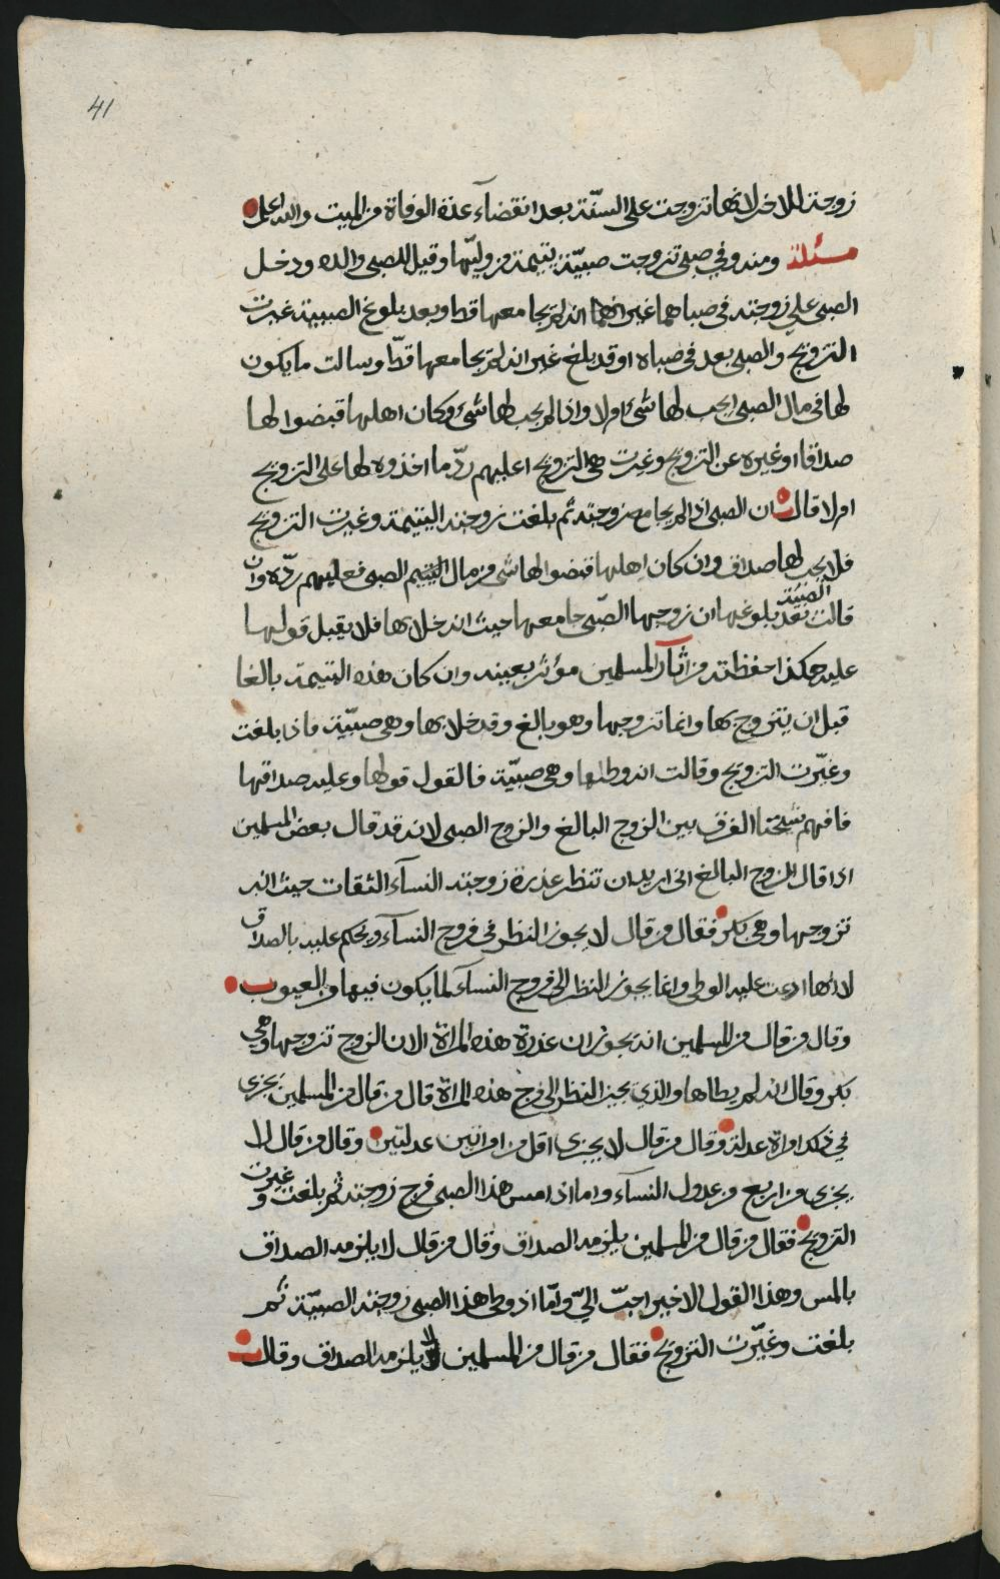 41
زوجة للاخر لانها تزوجت على السنّة بعد انقضآء عدة الوفاة من الميت والله اعلم
مسئلة ومنه وفي صبي تزوجت صبيّة يتيمة من وليّها وقبل للصبي والده ودخل
الصبي على زوجته في صباهما غير انهما انه لم يجامعها قط وبعد بلوغ الصبية غيرت
التزويج والصبي بعد في صباه او قد بلغ غير انه لم يجامعها قطّ وسالت ما يكون
لها في مال الصبي ايجب لها شئ ام لا واذا لم يجب لها شئ وكان اهلها قبضوا لها
صداقا او غيره عن التزويج وغيرت هي التزويج اعليهم ردّ ما اخذوه لها على التزويج
ام لا قال ان الصبي اذا لم يجامع زوجته ثم بلغت زوجته اليتيمة وغيرت التزويج
فلا يجب لها صداق وان كان اهلها قبضوا لها شئ من مال اليتيم الصبي فعليهم ردّه وان
قالت الصبيّة بعد بلوغها ان زوجها الصّبي جامعها حيث انه خلا بها فلا يقبل قولها
عليه هكذا حفظته من اثآر المسلمين مؤثر بعينه وان كان هذه اليتيمة بالغا
قبل ان يتزوج بها وانما تزوجها وهو بالغ وقد خلا بها وهي صبيّة فاذا بلغت
وغيّرت التزويج وقالت انه وطئها وهي صبيّة فالقول قولها وعليه صداقها
فافهم شيخنا الفرق بين الزوج البالغ والزوج الصبي لانه قد قال بعض المسلمين
اذا قال الزوج البالغ اني اريد ان تنظر عذرة زوجته النسآء الثقات حيث انه
تزوجها وهي بكر فقال من قال لا يجوز النظر في فروج النسآء ويحكم عليه بالصداق
لانها ادعت عليه الوطي وانما يجوز النظر الى فروج النسآء لما يكون فيها من العيوب
وقال من قال من المسلمين انه يجوز ان عذرة هذه المراة الان الزوج تزوجها وهي
بكر وقال انه لم يطاها والذي يجيز النظر الى فرج هذه المراة قال من قال من المسلمين يجزي
في ذلك امراة عدلة وقال من قال لا يجزي اقل من امراتين عدلتين وقال من قال لا
يجزي من اربع من عدول النسآء واما اذا مس هذا الصبي فرج زوجته ثم بلغت وغيرت
التزويج فقال من قال من المسلمين يلزمه الصداق وقال من قال لا يلزمه الصداق
بالمس وهذا القول الاخير احبّ اليّ وامّا اذا وطي هذا الصبي زوجته الصبيّة ثم
بلغت وغيّرت التزويج فقال من قال من المسلمين لا يلزمه الصداق وقال